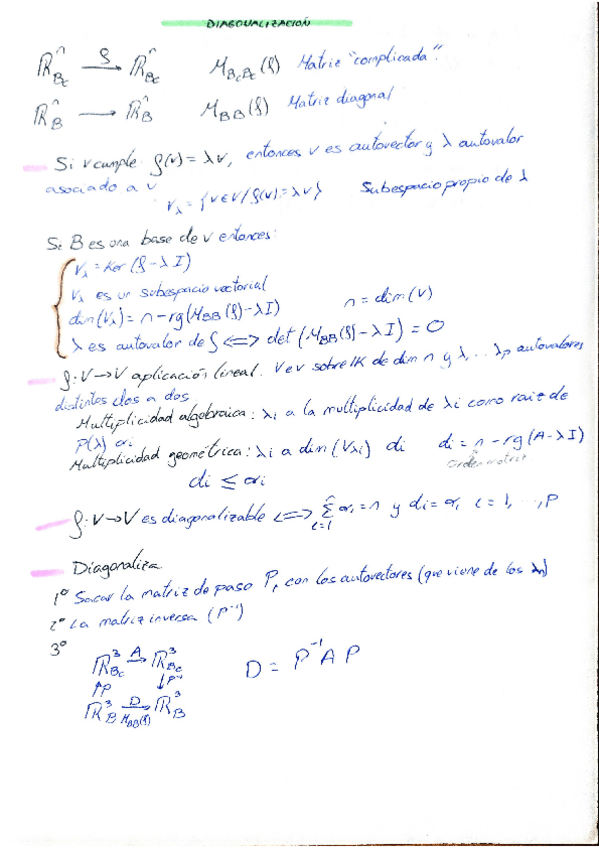 DIAGONALIZACIÓN
ℝⁿ_Bc —f→ ℝⁿ_Bc M_BcBc(f) Matriz "complicada".
ℝⁿ_B → ℝⁿ_B M_BB(f) Matriz diagonal
Si v cumple f(v) = λv, entonces v es autovector y λ autovalor
asociado a v
V_λ = {v∈V / f(v) = λv} Subespacio propio de λ
Si B es una base de v entonces:
V_λ = Ker(f - λI)
V_λ es un subespacio vectorial
dim(V_λ) = n - rg(M_BB(f) - λI) n = dim(V)
λ es autovalor de f ⟺ det(M_BB(f) - λI) = 0
f: V→V aplicación lineal. V ev sobre IK de dim n y λ, ... λp autovalores
distintos dos a dos
Multiplicidad algebraica: λi a la multiplicidad de λi como raiz de
P(λ) αi
Multiplicidad geométrica: λi a dim(V_λi) di di = n - rg(A - λI)
Orden matriz
di ≤ αi
f: V→V es diagonalizable ⟺ Σ αi = n y di = αi i = 1, ..., p
i=1
Diagonaliza
1º Sacar la matriz de paso P, con los autovectores (que viene de los λn)
2º La matriz inversa (P⁻¹)
3º
ℝ³_Bc —A→ ℝ³_Bc D = P⁻¹ A P
↑P ↓P⁻¹
ℝ³_B —D→ ℝ³_B
M_BB(f)